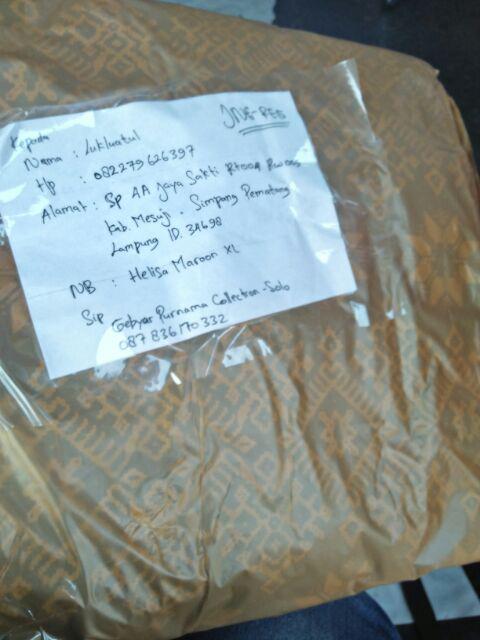 Kepada
JNE-REG
Nama : Lukluatul
Hp : 082279626397
Alamat : SP 4A Jaya Sakti Rt004 Rw005
Kab. Mesuji - Simpang Pematang
Lampung ID. 34698
NB : Helisa Maroon XL
Sip Gebyar Purnama Collection-Solo
087836170332